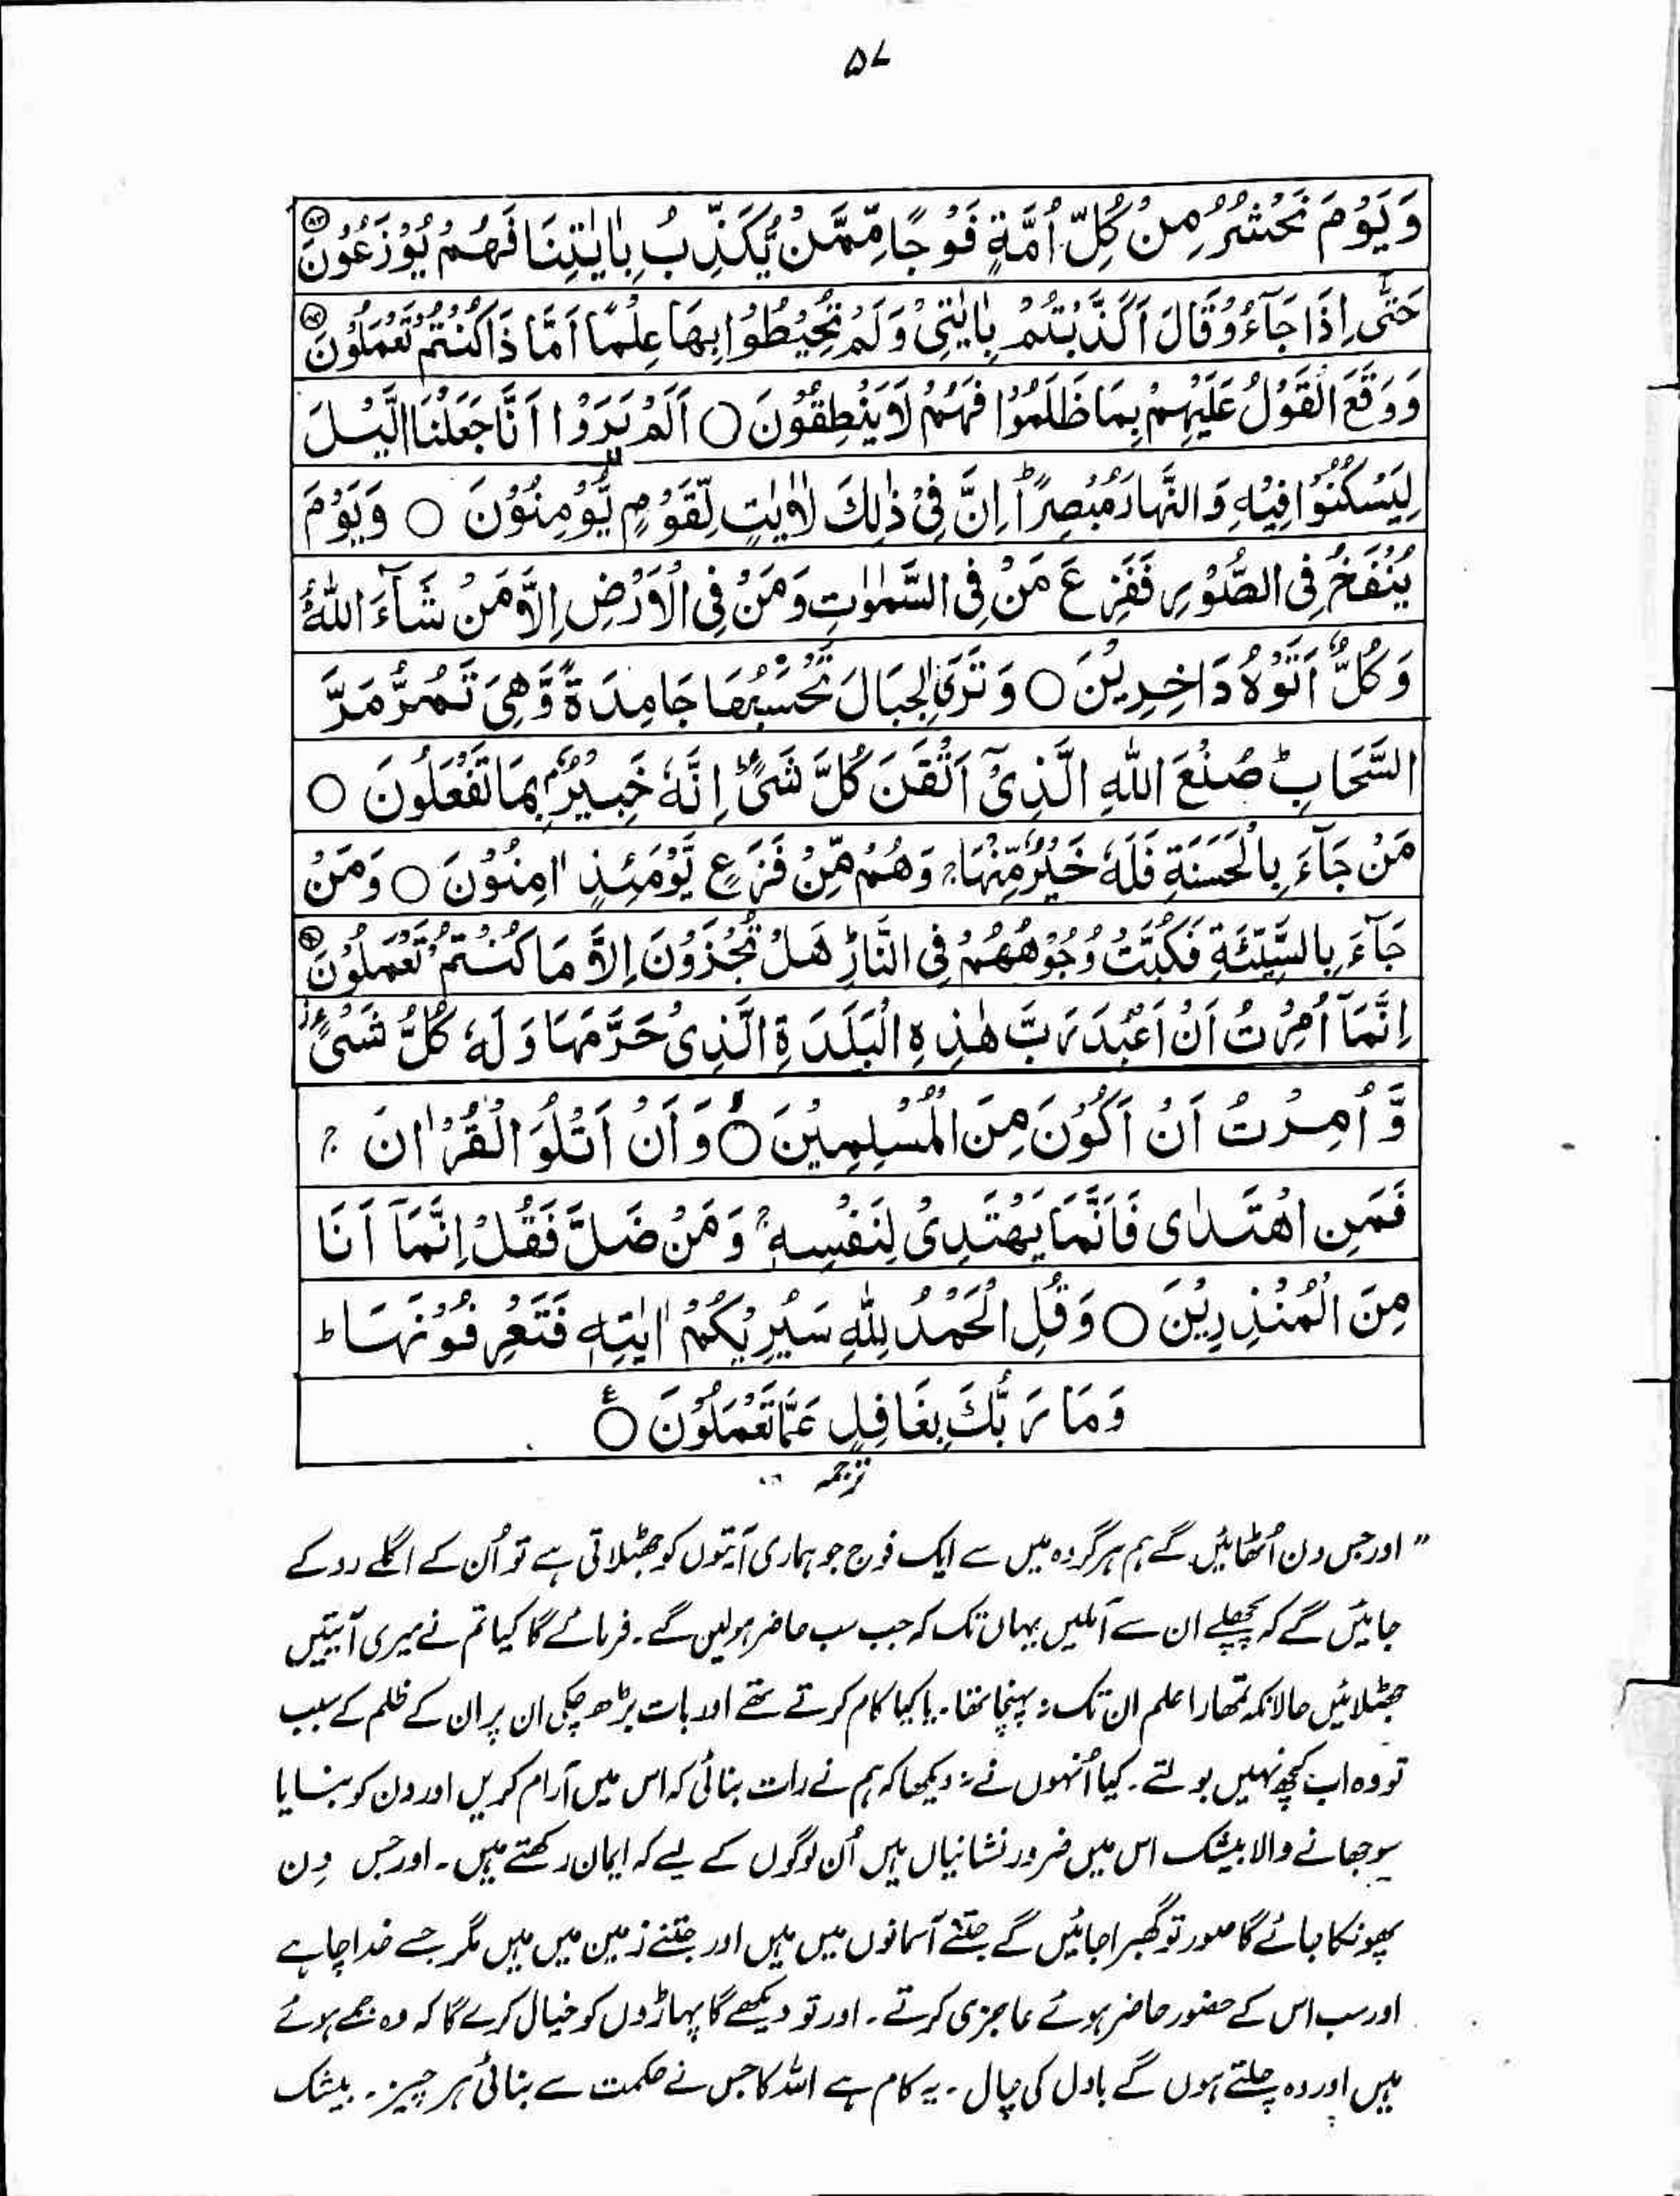 ۵۷
وَيَوْمَ نَحْشُرُ مِنْ كُلِّ اُمَّةٍ فَوْجًا مِّمَّنْ يُّكَذِّبُ بِاٰيٰتِنَا فَهُمْ يُوْزَعُوْنَ ۝۸۳
حَتّٰى اِذَا جَآءُوْ قَالَ اَكَذَّبْتُمْ بِاٰيٰتِىْ وَلَمْ تُحِيْطُوْا بِهَا عِلْمًا اَمَّا ذَا كُنْتُمْ تَعْمَلُوْنَ ۝۸۴
وَوَقَعَ الْقَوْلُ عَلَيْهِمْ بِمَا ظَلَمُوْا فَهُمْ لَا يَنْطِقُوْنَ ○ اَلَمْ يَرَوْا اَنَّا جَعَلْنَا الَّيْلَ
لِيَسْكُنُوْا فِيْهِ وَالنَّهَارَ مُبْصِرًا ؕ اِنَّ فِىْ ذٰلِكَ لَاٰيٰتٍ لِّقَوْمٍ يُّؤْمِنُوْنَ ○ وَيَوْمَ
يُنْفَخُ فِى الصُّوْرِ فَفَزِعَ مَنْ فِى السَّمٰوٰتِ وَمَنْ فِى الْاَرْضِ اِلَّا مَنْ شَآءَ اللّٰهُ ؕ
وَكُلٌّ اَتَوْهُ دَاخِرِيْنَ ○ وَتَرَى الْجِبَالَ تَحْسَبُهَا جَامِدَةً وَّهِىَ تَمُرُّ مَرَّ
السَّحَابِ ؕ صُنْعَ اللّٰهِ الَّذِىْٓ اَتْقَنَ كُلَّ شَىْءٍ ؕ اِنَّهٗ خَبِيْرٌۢ بِمَا تَفْعَلُوْنَ ○
مَنْ جَآءَ بِالْحَسَنَةِ فَلَهٗ خَيْرٌ مِّنْهَا ۚ وَهُمْ مِّنْ فَزَعٍ يَّوْمَئِذٍ اٰمِنُوْنَ ○ وَمَنْ
جَآءَ بِالسَّيِّئَةِ فَكُبَّتْ وُجُوْهُهُمْ فِى النَّارِ ؕ هَلْ تُجْزَوْنَ اِلَّا مَا كُنْتُمْ تَعْمَلُوْنَ ۝۹۰
اِنَّمَآ اُمِرْتُ اَنْ اَعْبُدَ رَبَّ هٰذِهِ الْبَلَدَةِ الَّذِىْ حَرَّمَهَا وَلَهٗ كُلُّ شَىْءٍ ۫
وَّاُمِرْتُ اَنْ اَكُوْنَ مِنَ الْمُسْلِمِيْنَ ○ وَاَنْ اَتْلُوَا الْقُرْاٰنَ ۚ
فَمَنِ اهْتَدٰى فَاِنَّمَا يَهْتَدِىْ لِنَفْسِهٖ ۚ وَمَنْ ضَلَّ فَقُلْ اِنَّمَآ اَنَا
مِنَ الْمُنْذِرِيْنَ ○ وَقُلِ الْحَمْدُ لِلّٰهِ سَيُرِيْكُمْ اٰيٰتِهٖ فَتَعْرِفُوْنَهَا ؕ
وَمَا رَبُّكَ بِغَافِلٍ عَمَّا تَعْمَلُوْنَ ○ ع
ترجمہ :
” اور جس دن اُٹھائیں گے ہم ہر گروہ میں سے ایک فوج جو ہماری آیتوں کو جھٹلاتی ہے تو اُن کے اگلے روکے
جائیں گے کہ پچھلے ان سے آملیں یہاں تک کہ جب سب حاضر ہولیں گے۔ فرمائے گا کیا تم نے میری آیتیں
جھٹلائیں حالانکہ تمھارا علم ان تک نہ پہنچا تھا۔ یا کیا کام کرتے تھے اور بات بڑھ چکی ان پر ان کے ظلم کے سبب
تو وہ اب کچھ نہیں بولتے۔ کیا اُنہوں نے نہ دیکھا کہ ہم نے رات بنائی کہ اس میں آرام کریں اور دن کو بنایا
سوجھانے والا بیشک اس میں ضرور نشانیاں ہیں اُن لوگوں کے لیے کہ ایمان رکھتے ہیں۔ اور جس دِن
پھونکا جائے گا صور تو گھبرا جائیں گے جتنے آسمانوں میں ہیں اور جتنے زمین میں ہیں مگر جسے خدا چاہے
اور سب اس کے حضور حاضر ہوئے عاجزی کرتے۔ اور تو دیکھے گا پہاڑوں کو خیال کرے گا کہ وہ جمے ہوئے
ہیں اور وہ چلتے ہوں گے بادل کی چال۔ یہ کام ہے اللہ کا جس نے حکمت سے بنائی ہر چیز۔ بیشک